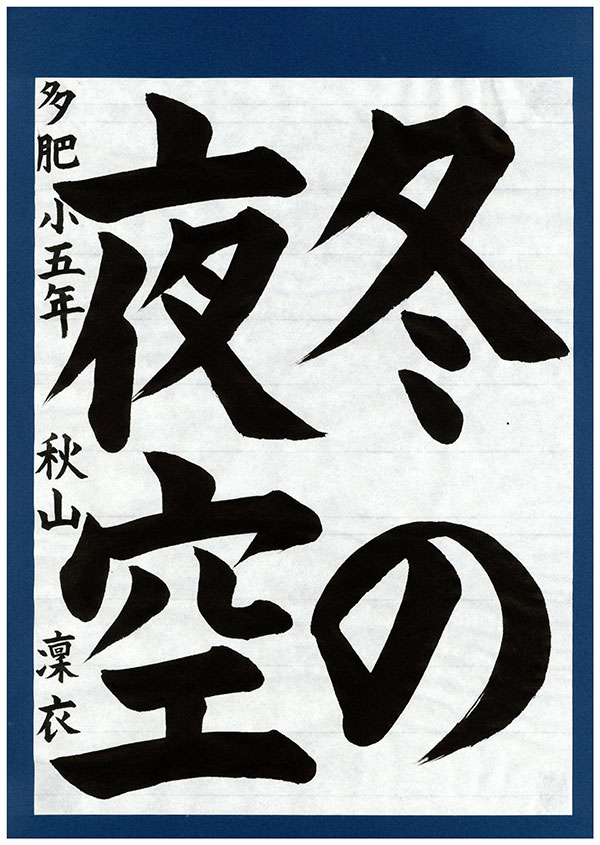 冬の
夜空
多肥小五年 秋山 凜衣